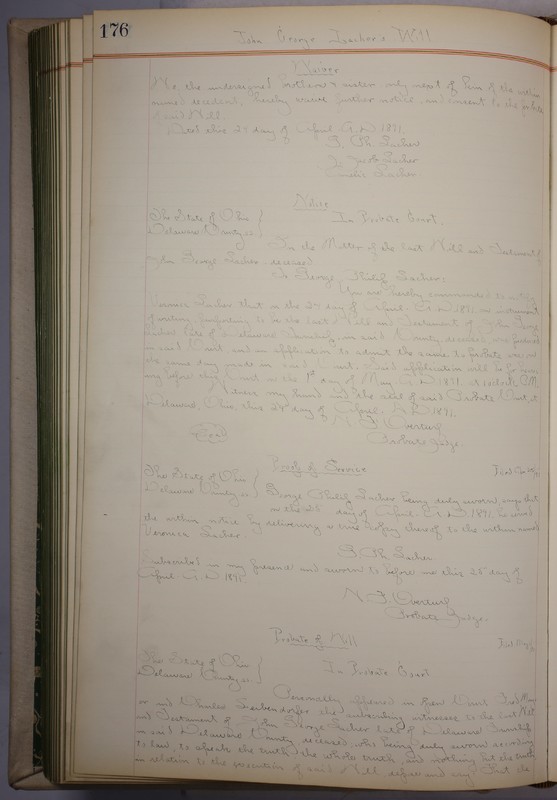 176
John George Lacher's Will
Waiver
We, the undersigned brothers & sister only next of kin of the within
named decedent, hereby waive further notice, and consent to the probate
of said Will.
Dated this 28 day of April A.D. 1891.
G. Ph. Lacher
Jacob Lacher
Lacher
Notice
The State of Ohio }
Delaware County, ss. }
In Probate Court.
In the Matter of the Last Will and Testament of
John George Lacher deceased
To George Philip Lacher:
You are hereby commanded to notify
Veronica Lacher that on the 28 day of April A.D. 1891, an instrument
of writing, purporting to be the Last Will and Testament of John George
Lacher late of Delaware Township, in said County, deceased, was produced
in said Court, and an application to admit the same to probate was on
the same day made in said Court. Said application will be for hearing
before this Court on the 1st day of May A.D. 1891, at o'clock M.
Witness my hand and the seal of said Probate Court, at
Delaware, Ohio, this 28 day of April A.D. 1891.
N. F. Overturf
(Seal)
Probate Judge.
Proof of Service
Filed
The State of Ohio }
Delaware County, ss. }
George Philip Lacher being duly sworn, says that
on the 28 day of April A.D. 1891, he served
the within notice by delivering a true copy thereof to the within named
Veronica Lacher.
G. Ph. Lacher
Subscribed in my presence and sworn to before me this 28 day of
April A.D. 1891
N. F. Overturf
Probate Judge.
Probate of Will
Filed
The State of Ohio }
Delaware County, ss. }
In Probate Court
Personally appeared in open Court
and Charles the subscribing witnesses to the Last Will
and Testament of John George Lacher late of Delaware Township
in said Delaware County, deceased, who being duly sworn according
to law, to speak the truth, the whole truth, and nothing but the truth
in relation to the execution of said Will depose and say: That the